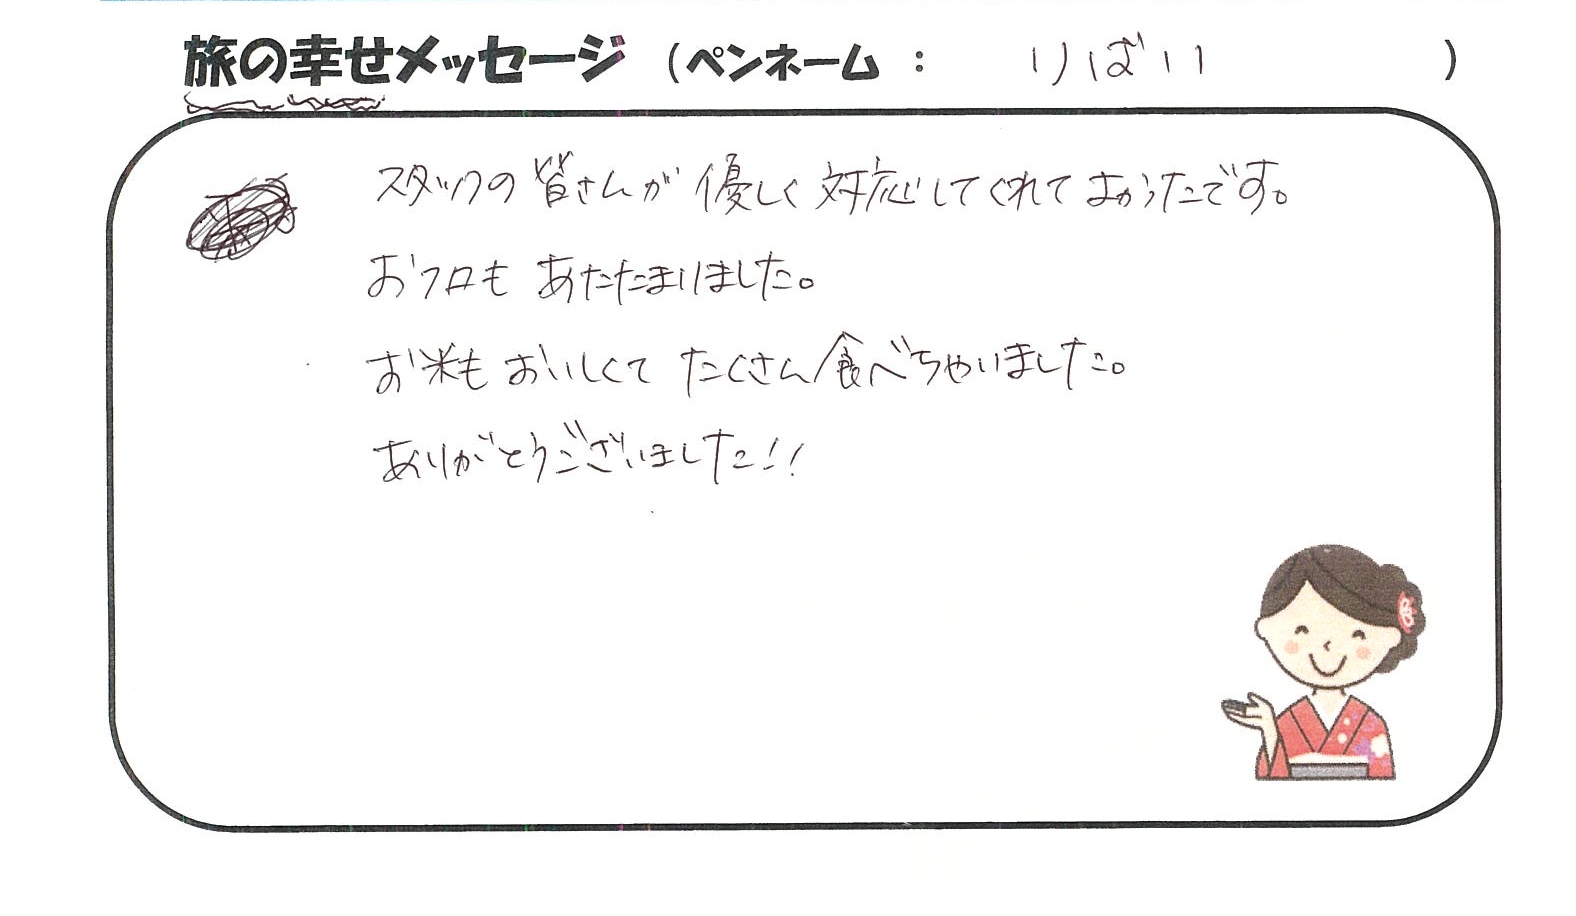 旅の幸せメッセージ（ペンネーム： りばい ）
スタッフの皆さんが優しく対応してくれてよかったです。
おフロもあたたまりました。
お米もおいしくてたくさん食べちゃいました。
ありがとうございました!!